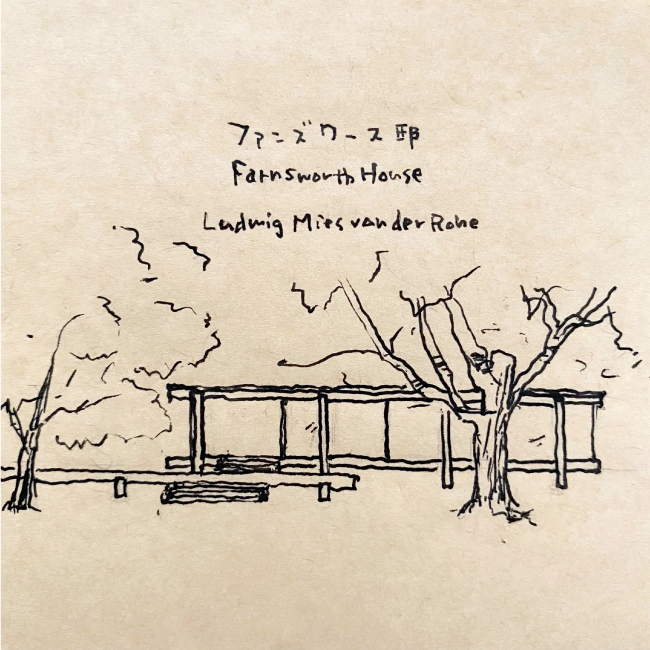 ファンズワース邸
Farnsworth House
Ludwig Mies van der Rohe